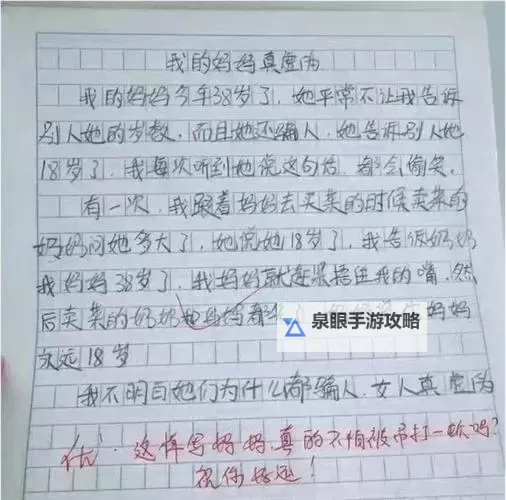 我的妈妈真虚伪
我的妈妈今年38岁了，她平常不让我告诉
别人她的岁数，而且她还骗人，她告诉别人她
18岁了，我每次听到她说这句话，都会偷笑。
有一次，我跟着妈妈去买菜的时候卖菜的
奶奶问她多大了，她说她18岁了，我告诉奶奶
我妈妈38岁了，我妈妈就赶紧捂住我的嘴，然
后卖菜的奶奶和妈妈都 妈妈
永远18岁
我不明白她们为什么都骗人，女人真虚伪
优。这样写妈妈，真的不怕被吊打一顿吗？
祝你好运！
泉眼手游攻略